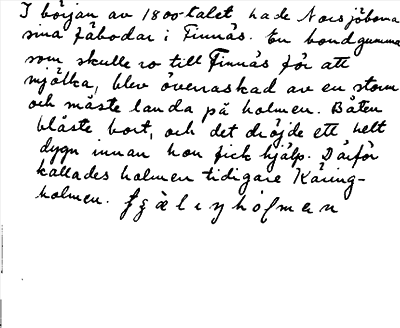 I början av 1800 talet, hade Norsjöborna
sina fäbodar i Finnäs. En bondgumma
som skulle ro till Finnäs för att
mjölka, blev överraskad av en storm
och måste landa på holmen. Båten
blåste bort, och det dröjde ett helt
dygn innan hon fick hjälp. Därför
kallades holmen tidigare Käring-
holmen.